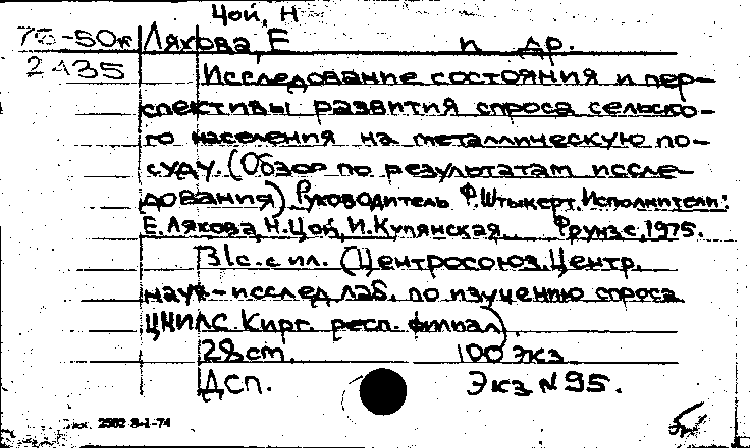 Цой, Н
76-50к Ляхова, Е и др.
2435 Исследование состояния и пер-
спективы развития спроса сельско-
го населения на металлическую по-
суду. (Обзор по результатам иссле-
дования). Руководитель Ф.Штыкерт. Исполнители:
Е.Ляхова, Н.Цой, И.Купянская. Фрунзе, 1975.
31с. с ил. (Центросоюз. Центр.
науч-исслед. лаб. по изучению спроса
ЦНИЛС. Кирг. респ. филиал).
28см. 100 экз
ДСП. Экз N 95.
Зак. 2562 8-1-74